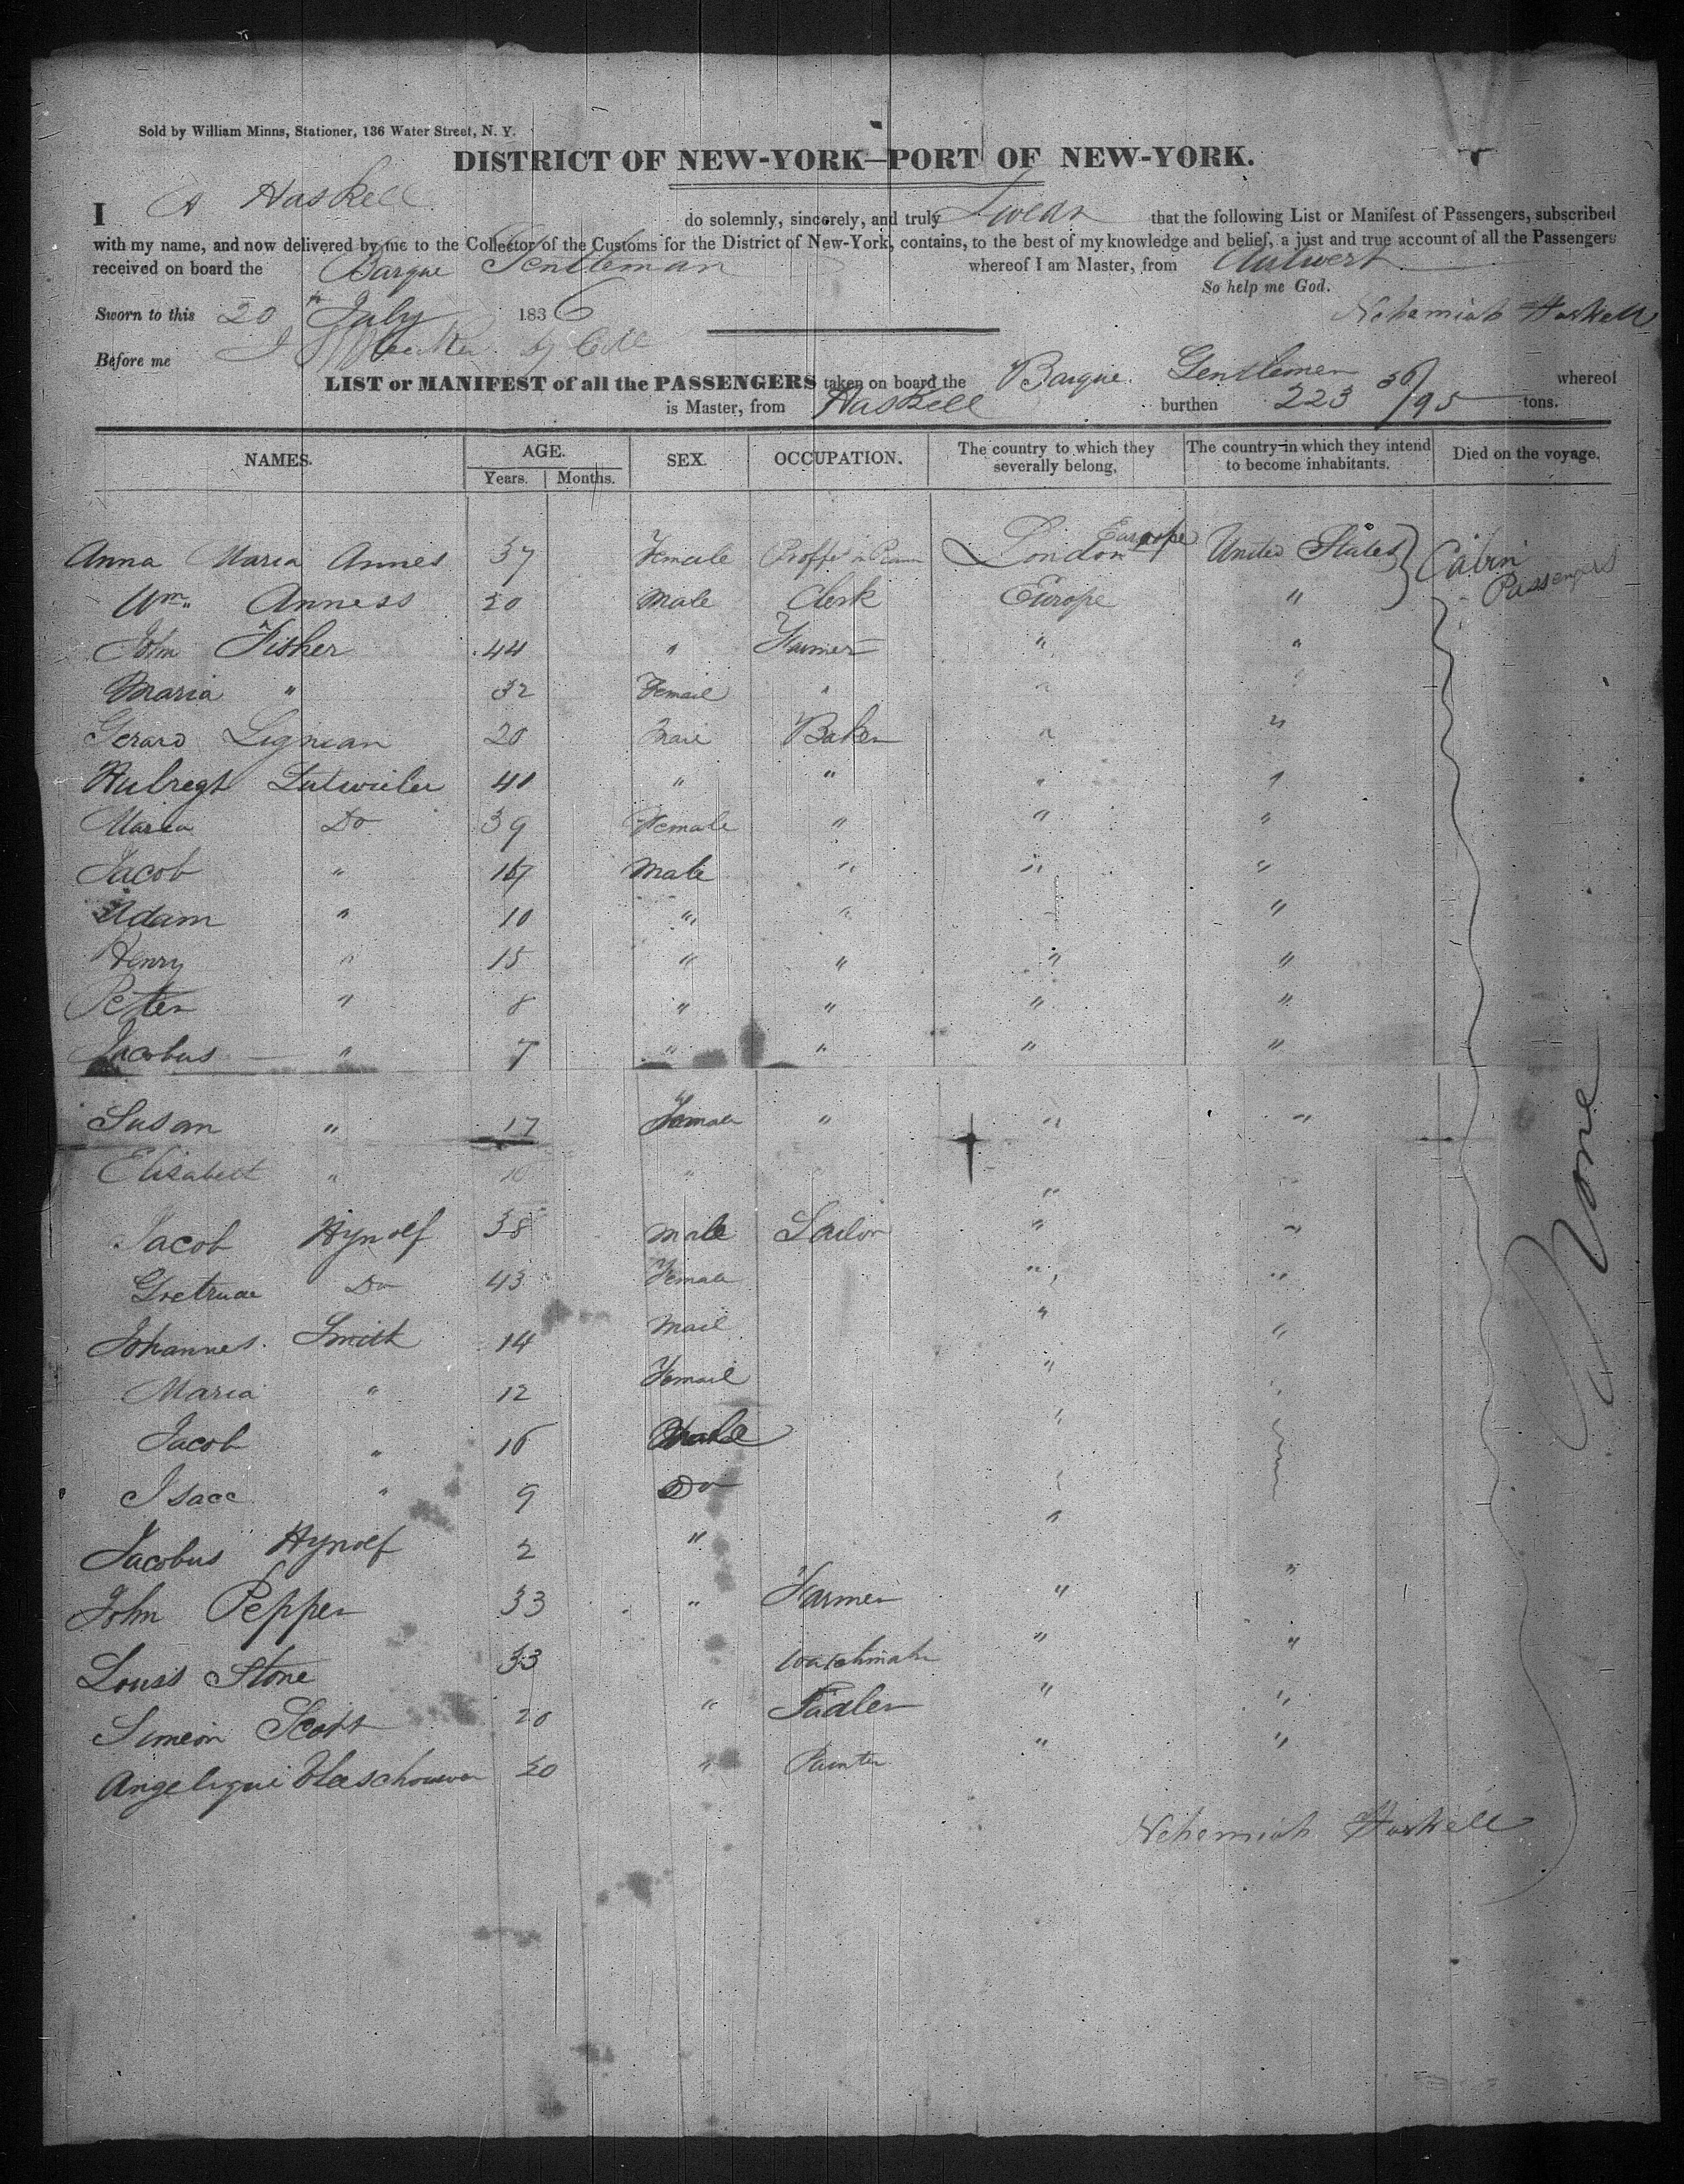 Sold by William Minns, Stationer, 136 Water Street, N. Y.
DISTRICT OF NEW-YORK—PORT OF NEW-YORK.
I Haskell do solemnly, sincerely, and truly Swear that the following List or Manifest of Passengers, subscribed
with my name, and now delivered by me to the Collector of the Customs for the District of New-York, contains, to the best of my knowledge and belief, a just and true account of all the Passengers
received on board the Barque Gentleman whereof I am Master, from Antwerp
So help me God.
Sworn to this 20 th July 1836 Nehemiah Haskell
Before me
LIST or MANIFEST of all the PASSENGERS taken on board the Barque Gentlemen whereof
is Master, from Haskell burthen 223 36/95 tons.
NAMES. AGE. Years. Months. SEX. OCCUPATION. The country to which they severally belong, The country in which they intend to become inhabitants. Died on the voyage.
Anna Maria Annes 37 Female London Europe United States Cabin Passengers
Wm. Anness 20 Male Clerk Europe "
John Fisher 44 " Farmer " "
Maria " 32 Femail " "
Gerard Lignian 20 Baker " "
Hubregt Lutwieler 40 " " "
Maria Do 39 Female " " "
Jacob " 17 Male " " "
Adam " 10 " " "
Henry " 15 " " " "
Peter " 8 " " " "
Jacobus " 7 " " " "
Susan " 17 Female " " "
Elisabett " "
Jacob Hynolf 38 Male Sailor " "
Gretrude Do 43 Female " "
Johannes Smith 14 Mail " "
Maria " 12 Femail "
Jacob " 16 Male "
Isacc " 9 Do
Jacobus Hynolf 2 " "
John Pepper 33 " Farmer " "
Louss Stone 33 watchmaker " "
Simeon Scott 20 " Sadler " "
Angelique 20 " Painter " "
None
Nehemiah Haskell